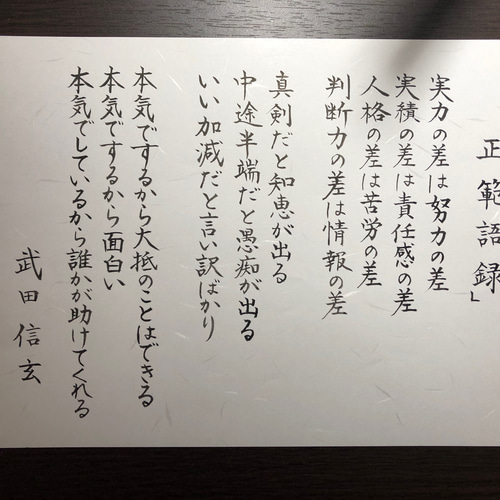 正範語録」
実力の差は努力の差
実績の差は責任感の差
人格の差は苦労の差
判断力の差は情報の差
真剣だと知恵が出る
中途半端だと愚痴が出る
いい加減だと言い訳ばかり
本気でするから大抵のことはできる
本気でするから面白い
本気でしているから誰かが助けてくれる
武田信玄